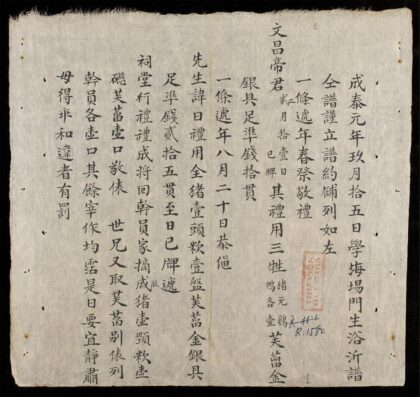 成泰元年玖月拾五日學海場門生浴沂譜
仝譜謹立譜約鋪列如左
一條遞年春祭敬禮
文昌帝君貳月拾壹日已牌其禮用三牲猪元鷄鴨各壹芙蒥金
銀具足準錢拾貫
一條遞年八月二十日恭
先生諱日禮用全猪壹頭粢壹盤芙蒥金銀具
足準錢貳拾五貫至日已牌遞
祠堂行禮禮成將回幹員家摘成猪壹頭粢壹
芙蒥壹口敬俵 世兄又取芙蒥別俵列
幹員各壹口其餘宰作均霑是日要宜靜肅
毋得乖和違者有罰
R.1580